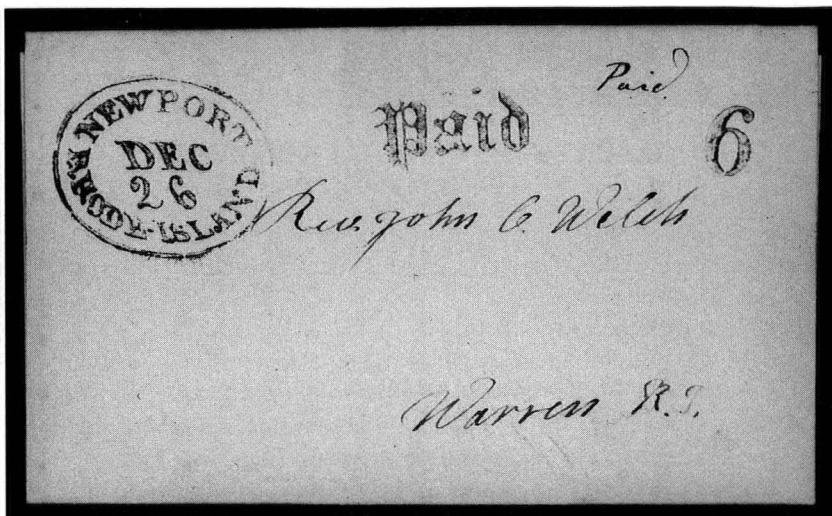 Paid
NEWPORT
DEC
26
RHODE-ISLAND
Paid
6
Rev. John C. Welch
Warren R.I.